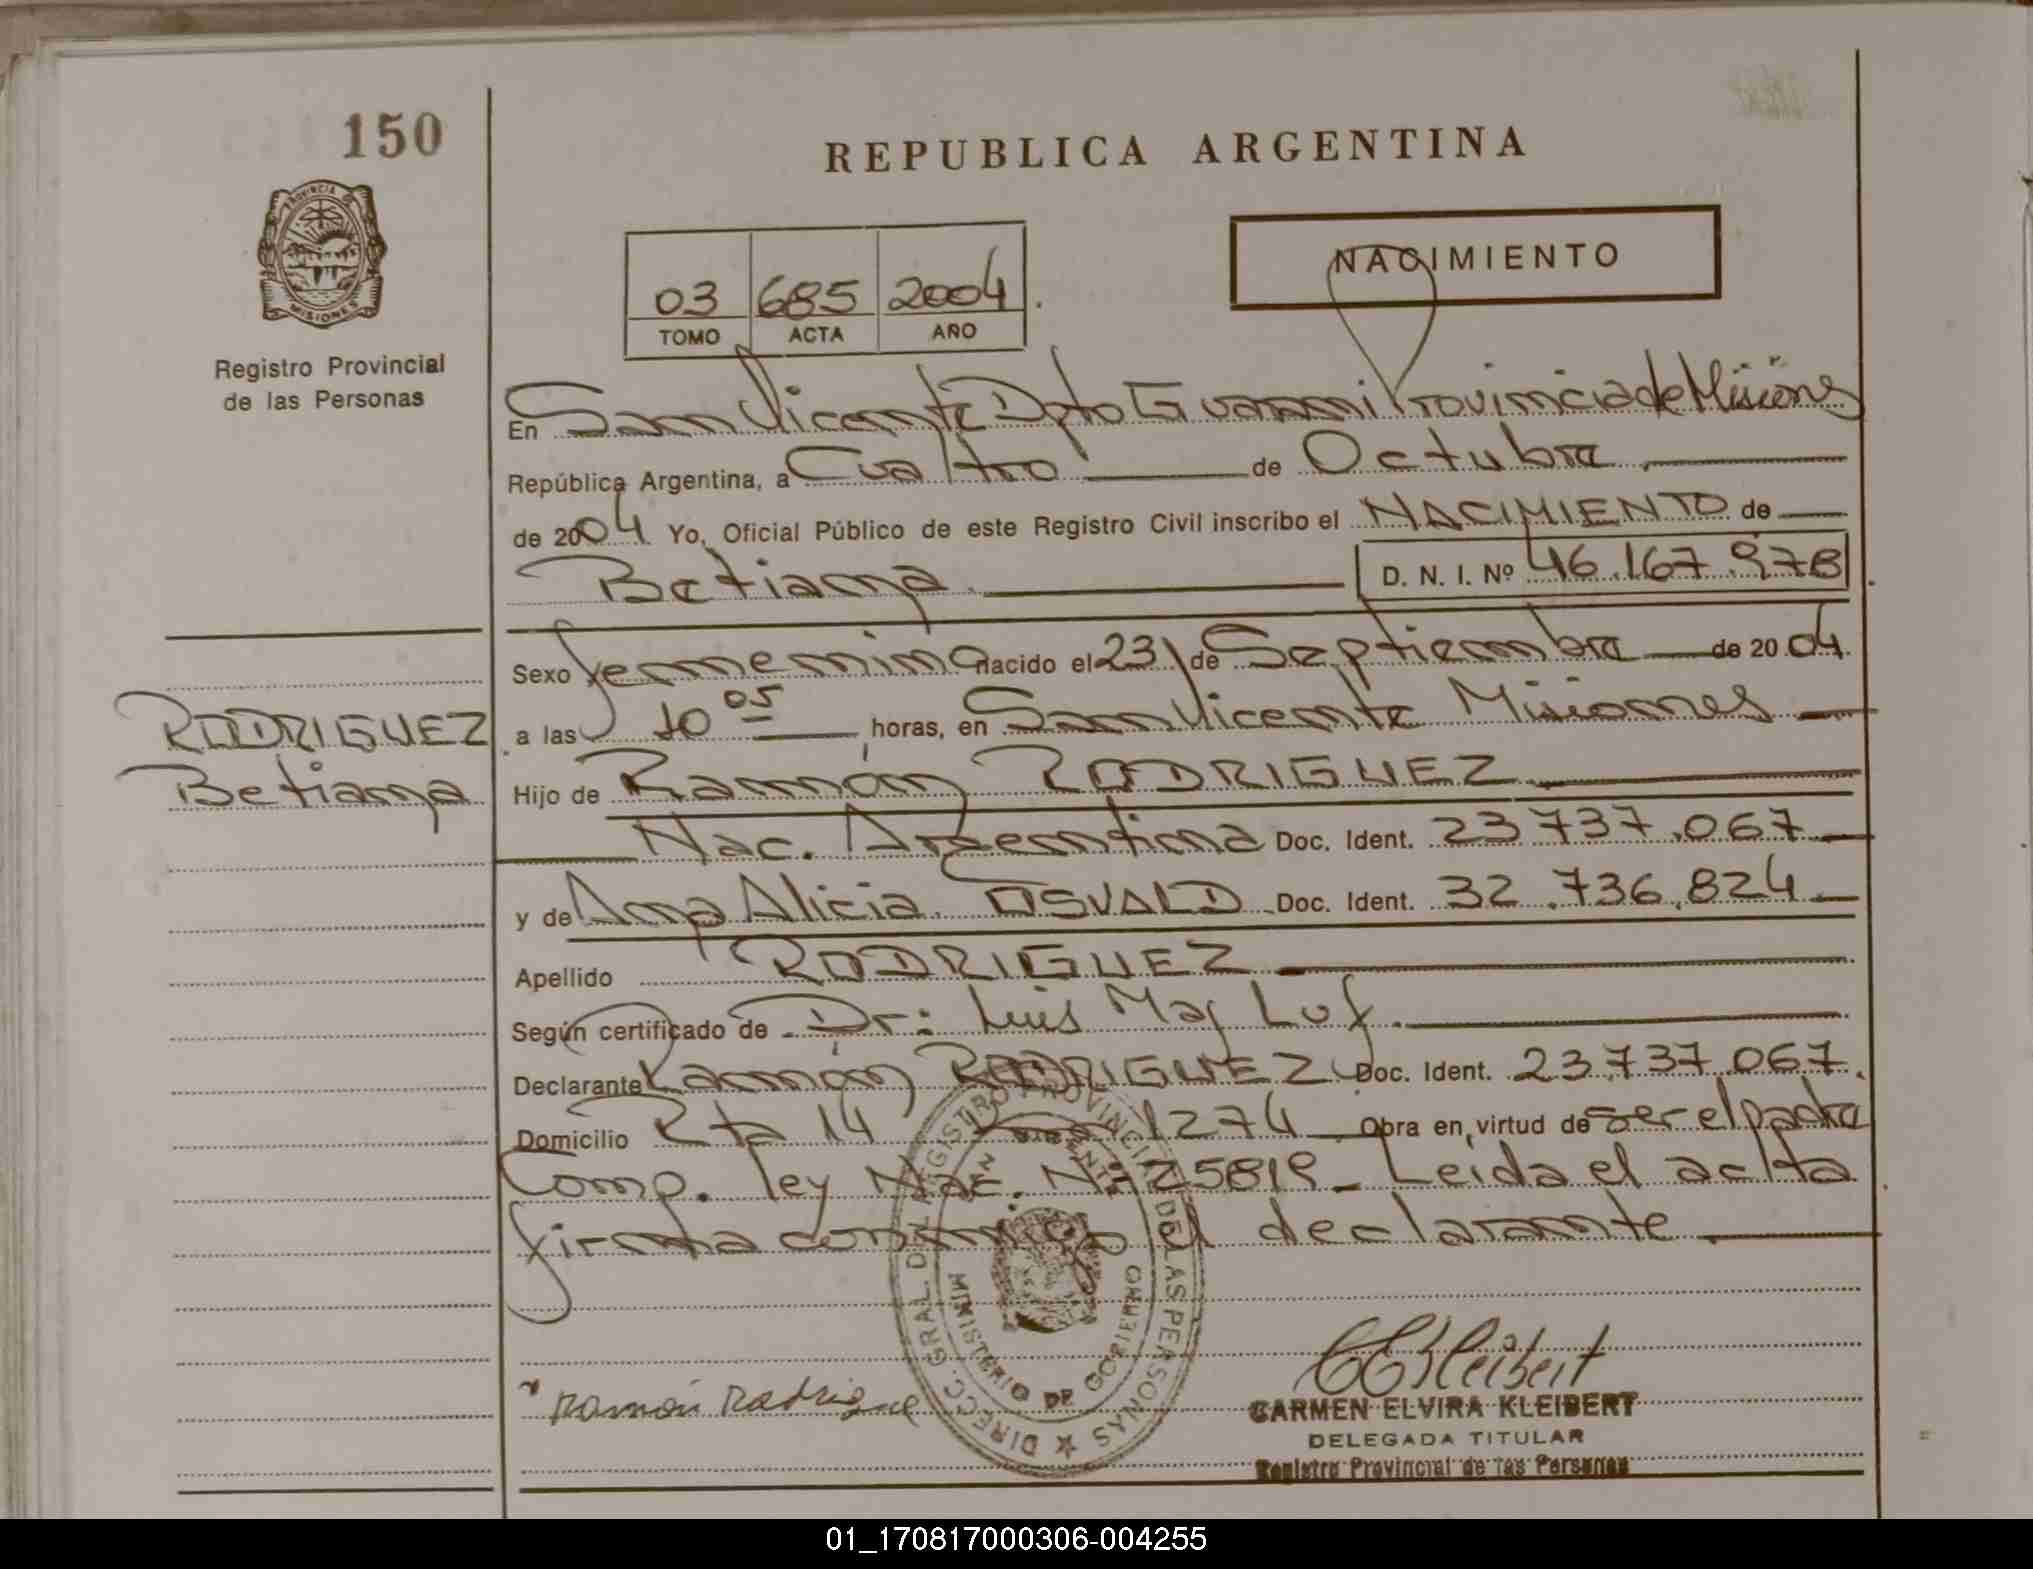 150
REPUBLICA ARGENTINA
PROVINCIA DE
MISIONES
Registro Provincial
de las Personas
NACIMIENTO
03 685 2004
TOMO ACTA AÑO
En San Vicente Dpto Guarani Provincia de Misiones
República Argentina, a Cuatro de Octubre
de 2004 Yo, Oficial Público de este Registro Civil inscribo el NACIMIENTO de
Betiana D. N. I. Nº 46.167.978
Sexo femenino nacido el 23 de Septiembre de 2004
RODRIGUEZ
Betiana
a las 10 05 horas, en San Vicente Misiones
Hijo de Ramón RODRIGUEZ
Nac. Argentina Doc. Ident. 23.737.067
y de Ana Alicia OSVALD Doc. Ident. 32.736.824
Apellido RODRIGUEZ
Según certificado de Dr: Luis Maj Luf
Declarante Ramón RODRIGUEZ Doc. Ident. 23.737.067
Domicilio Rta 14 1274 Obra en virtud de ser el padre
Comp. ley Nac. Nº 25819 - Leida el acta
firma conmigo el declarante
DIRECC. GRAL. DEL REGISTRO PROVINCIAL DE LAS PERSONAS
MINISTERIO DE GOBIERNO
Ramón Rodrigue
CEKleibert
CARMEN ELVIRA KLEIBERT
DELEGADA TITULAR
Registro Provincial de las Personas
01_170817000306-004255